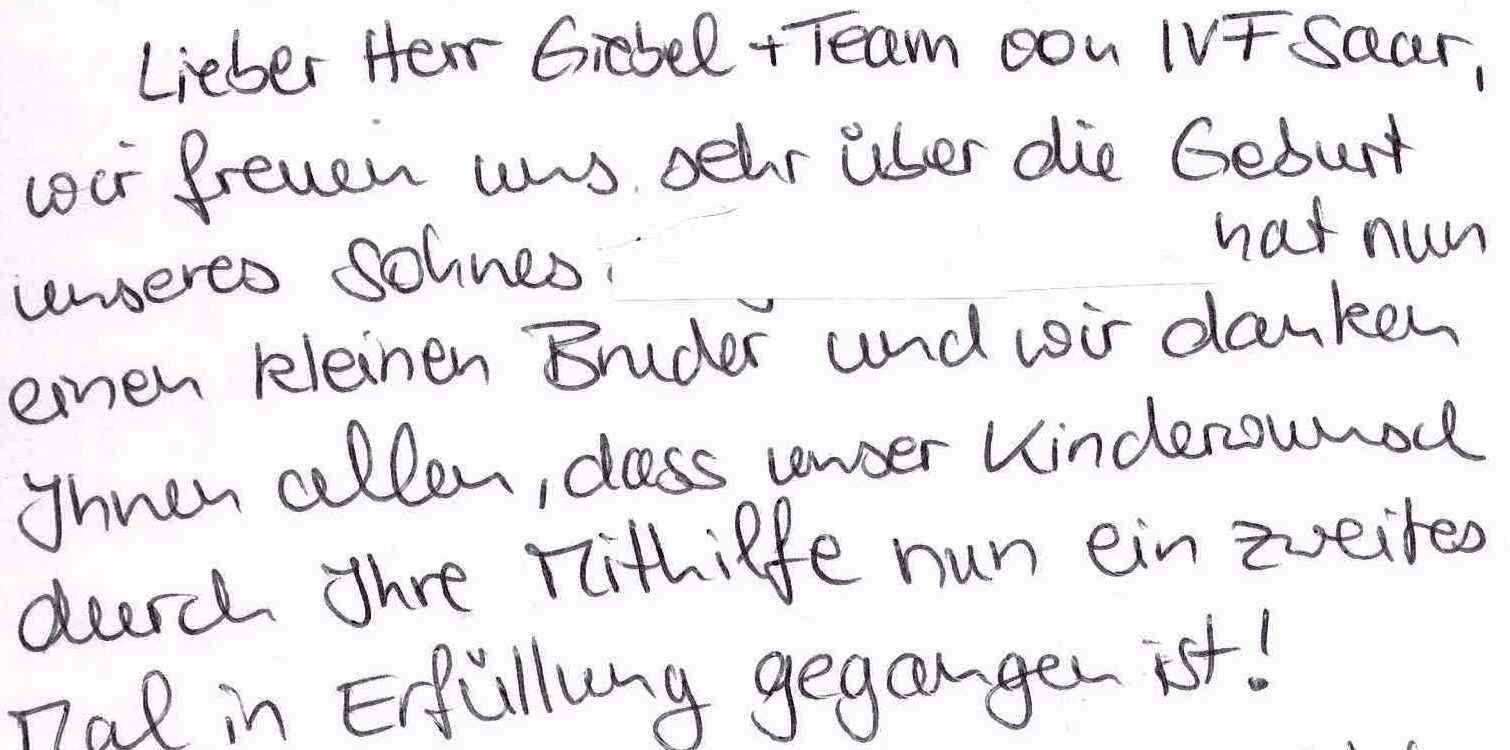 Lieber Herr Giebel + Team von IVF Saar,
wir freuen uns sehr über die Geburt
unseres Sohnes. hat nun
einen kleinen Bruder und wir danken
Ihnen allen, dass unser Kinderwunsch
durch Ihre Mithilfe nun ein zweites
Mal in Erfüllung gegangen ist!